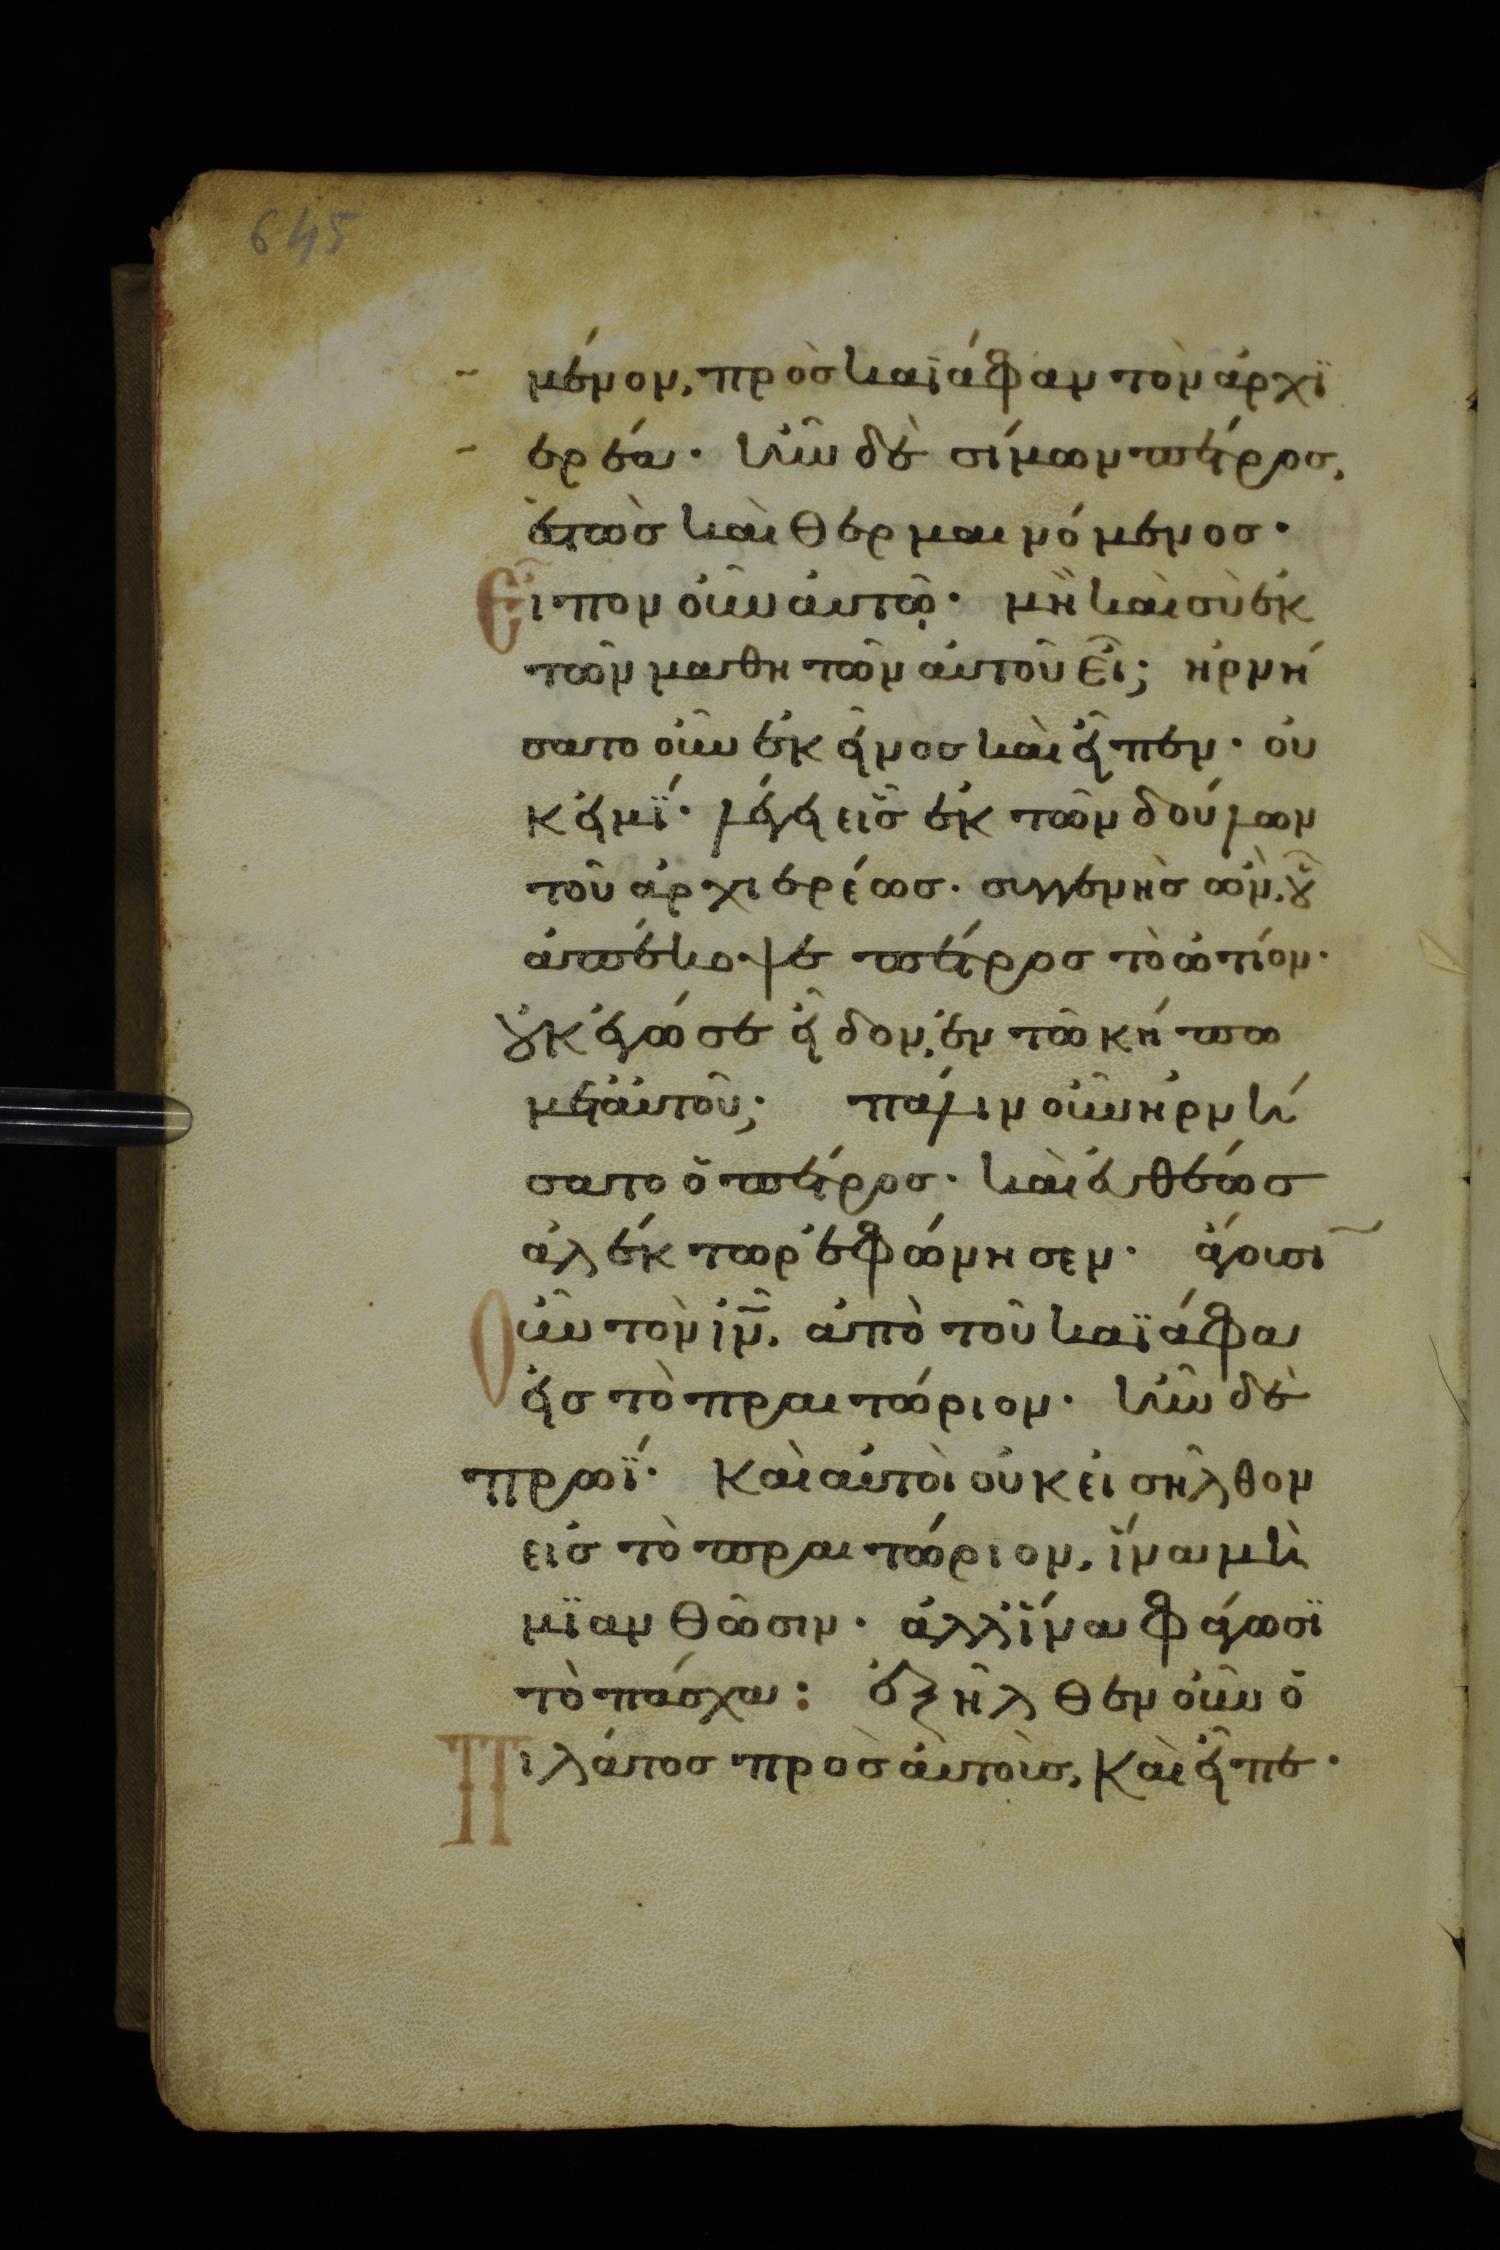 645
μένον, πρὸς καϊάφαν τὸν ἀρχϊ
ερέα· ἦν δὲ σίμων πέτρος,
ἑστὼς καὶ θερμαινόμενος·
Εἶπον οὖν αὐτῷ· μὴ καὶ σὺ ἐκ
τῶν μαθητῶν αὐτοῦ εἶ; ἠρνή
σατο οὖν ἐκεῖνος καὶ εἶπεν· οὐ
κ εἰμΐ· λέγει εἷς ἐκ τῶν δούλων
τοῦ ἀρχιερέως· συγγενὴς ὢν, οὗ
ἀπέκοψε πέτρος τὸ ὠτίον·
οὐκ ἐγώ σε εἶδον, ἐν τῶ κήπω
μετ αὐτοῦ; πάλιν οὖν ἠρνή
σατο ὁ πέτρος· καὶ ἐυθέως
ἀλέκτωρ ἐφώνησεν· ἄγουσῖ
Οὖν τὸν ἰν̄, ἀπὸ τοῦ καϊάφα
εἰς τὸ πραιτώριον· ἦν δὲ
πρωΐ· καὶ αὐτοὶ οὐκ εἰσῆλθον
εἰς τὸ πραιτώριον, ἵνα μὴ
μϊανθῶσιν· ἀλλ ἵνα φάγωσϊ
τὸ πάσχα: ἐξῆλθεν οὖν ὁ
Πιλάτος πρὸς αὐτοὺς, καὶ εἶπε·